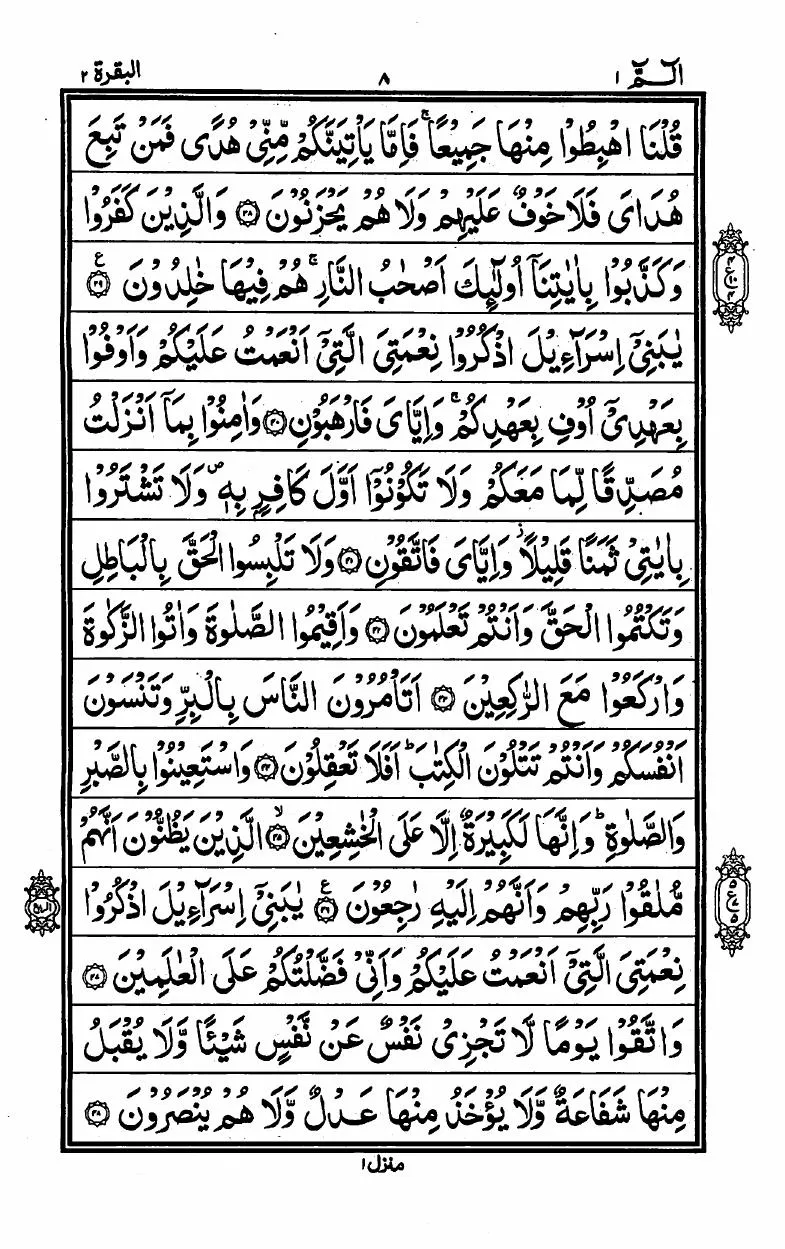 الٓـمّٓ ۱ ۸ البقرة ۲
قُلْنَا اهْبِطُوْا مِنْهَا جَمِيْعًا ۚ فَاِمَّا يَاْتِيَنَّكُمْ مِّنِّيْ هُدًى فَمَنْ تَبِعَ
هُدَايَ فَلَا خَوْفٌ عَلَيْهِمْ وَلَا هُمْ يَحْزَنُوْنَ ۝۳۸ وَالَّذِيْنَ كَفَرُوْا
وَكَذَّبُوْا بِاٰيٰتِنَآ اُولٰٓئِكَ اَصْحٰبُ النَّارِ ۚ هُمْ فِيْهَا خٰلِدُوْنَ ۝۳۹ ع
يٰبَنِيْٓ اِسْرَآءِيْلَ اذْكُرُوْا نِعْمَتِيَ الَّتِيْٓ اَنْعَمْتُ عَلَيْكُمْ وَاَوْفُوْا
بِعَهْدِيْٓ اُوْفِ بِعَهْدِكُمْ ۚ وَاِيَّايَ فَارْهَبُوْنِ ۝۴۰ وَاٰمِنُوْا بِمَآ اَنْزَلْتُ
مُصَدِّقًا لِّمَا مَعَكُمْ وَلَا تَكُوْنُوْٓا اَوَّلَ كَافِرٍ بِهٖ ۪ وَلَا تَشْتَرُوْا
بِاٰيٰتِيْ ثَمَنًا قَلِيْلًا ؗ وَاِيَّايَ فَاتَّقُوْنِ ۝۴۱ وَلَا تَلْبِسُوا الْحَقَّ بِالْبَاطِلِ
وَتَكْتُمُوا الْحَقَّ وَاَنْتُمْ تَعْلَمُوْنَ ۝۴۲ وَاَقِيْمُوا الصَّلٰوةَ وَاٰتُوا الزَّكٰوةَ
وَارْكَعُوْا مَعَ الرّٰكِعِيْنَ ۝۴۳ اَتَاْمُرُوْنَ النَّاسَ بِالْبِرِّ وَتَنْسَوْنَ
اَنْفُسَكُمْ وَاَنْتُمْ تَتْلُوْنَ الْكِتٰبَ ؕ اَفَلَا تَعْقِلُوْنَ ۝۴۴ وَاسْتَعِيْنُوْا بِالصَّبْرِ
وَالصَّلٰوةِ ؕ وَاِنَّهَا لَكَبِيْرَةٌ اِلَّا عَلَى الْخٰشِعِيْنَ ۝۴۵ ۙ الَّذِيْنَ يَظُنُّوْنَ اَنَّهُمْ
مُّلٰقُوْا رَبِّهِمْ وَاَنَّهُمْ اِلَيْهِ رٰجِعُوْنَ ۝۴۶ ع يٰبَنِيْٓ اِسْرَآءِيْلَ اذْكُرُوْا
نِعْمَتِيَ الَّتِيْٓ اَنْعَمْتُ عَلَيْكُمْ وَاَنِّيْ فَضَّلْتُكُمْ عَلَى الْعٰلَمِيْنَ ۝۴۷
وَاتَّقُوْا يَوْمًا لَّا تَجْزِيْ نَفْسٌ عَنْ نَّفْسٍ شَيْـًٔا وَّلَا يُقْبَلُ
مِنْهَا شَفَاعَةٌ وَّلَا يُؤْخَذُ مِنْهَا عَدْلٌ وَّلَا هُمْ يُنْصَرُوْنَ ۝۴۸
منزل ۱